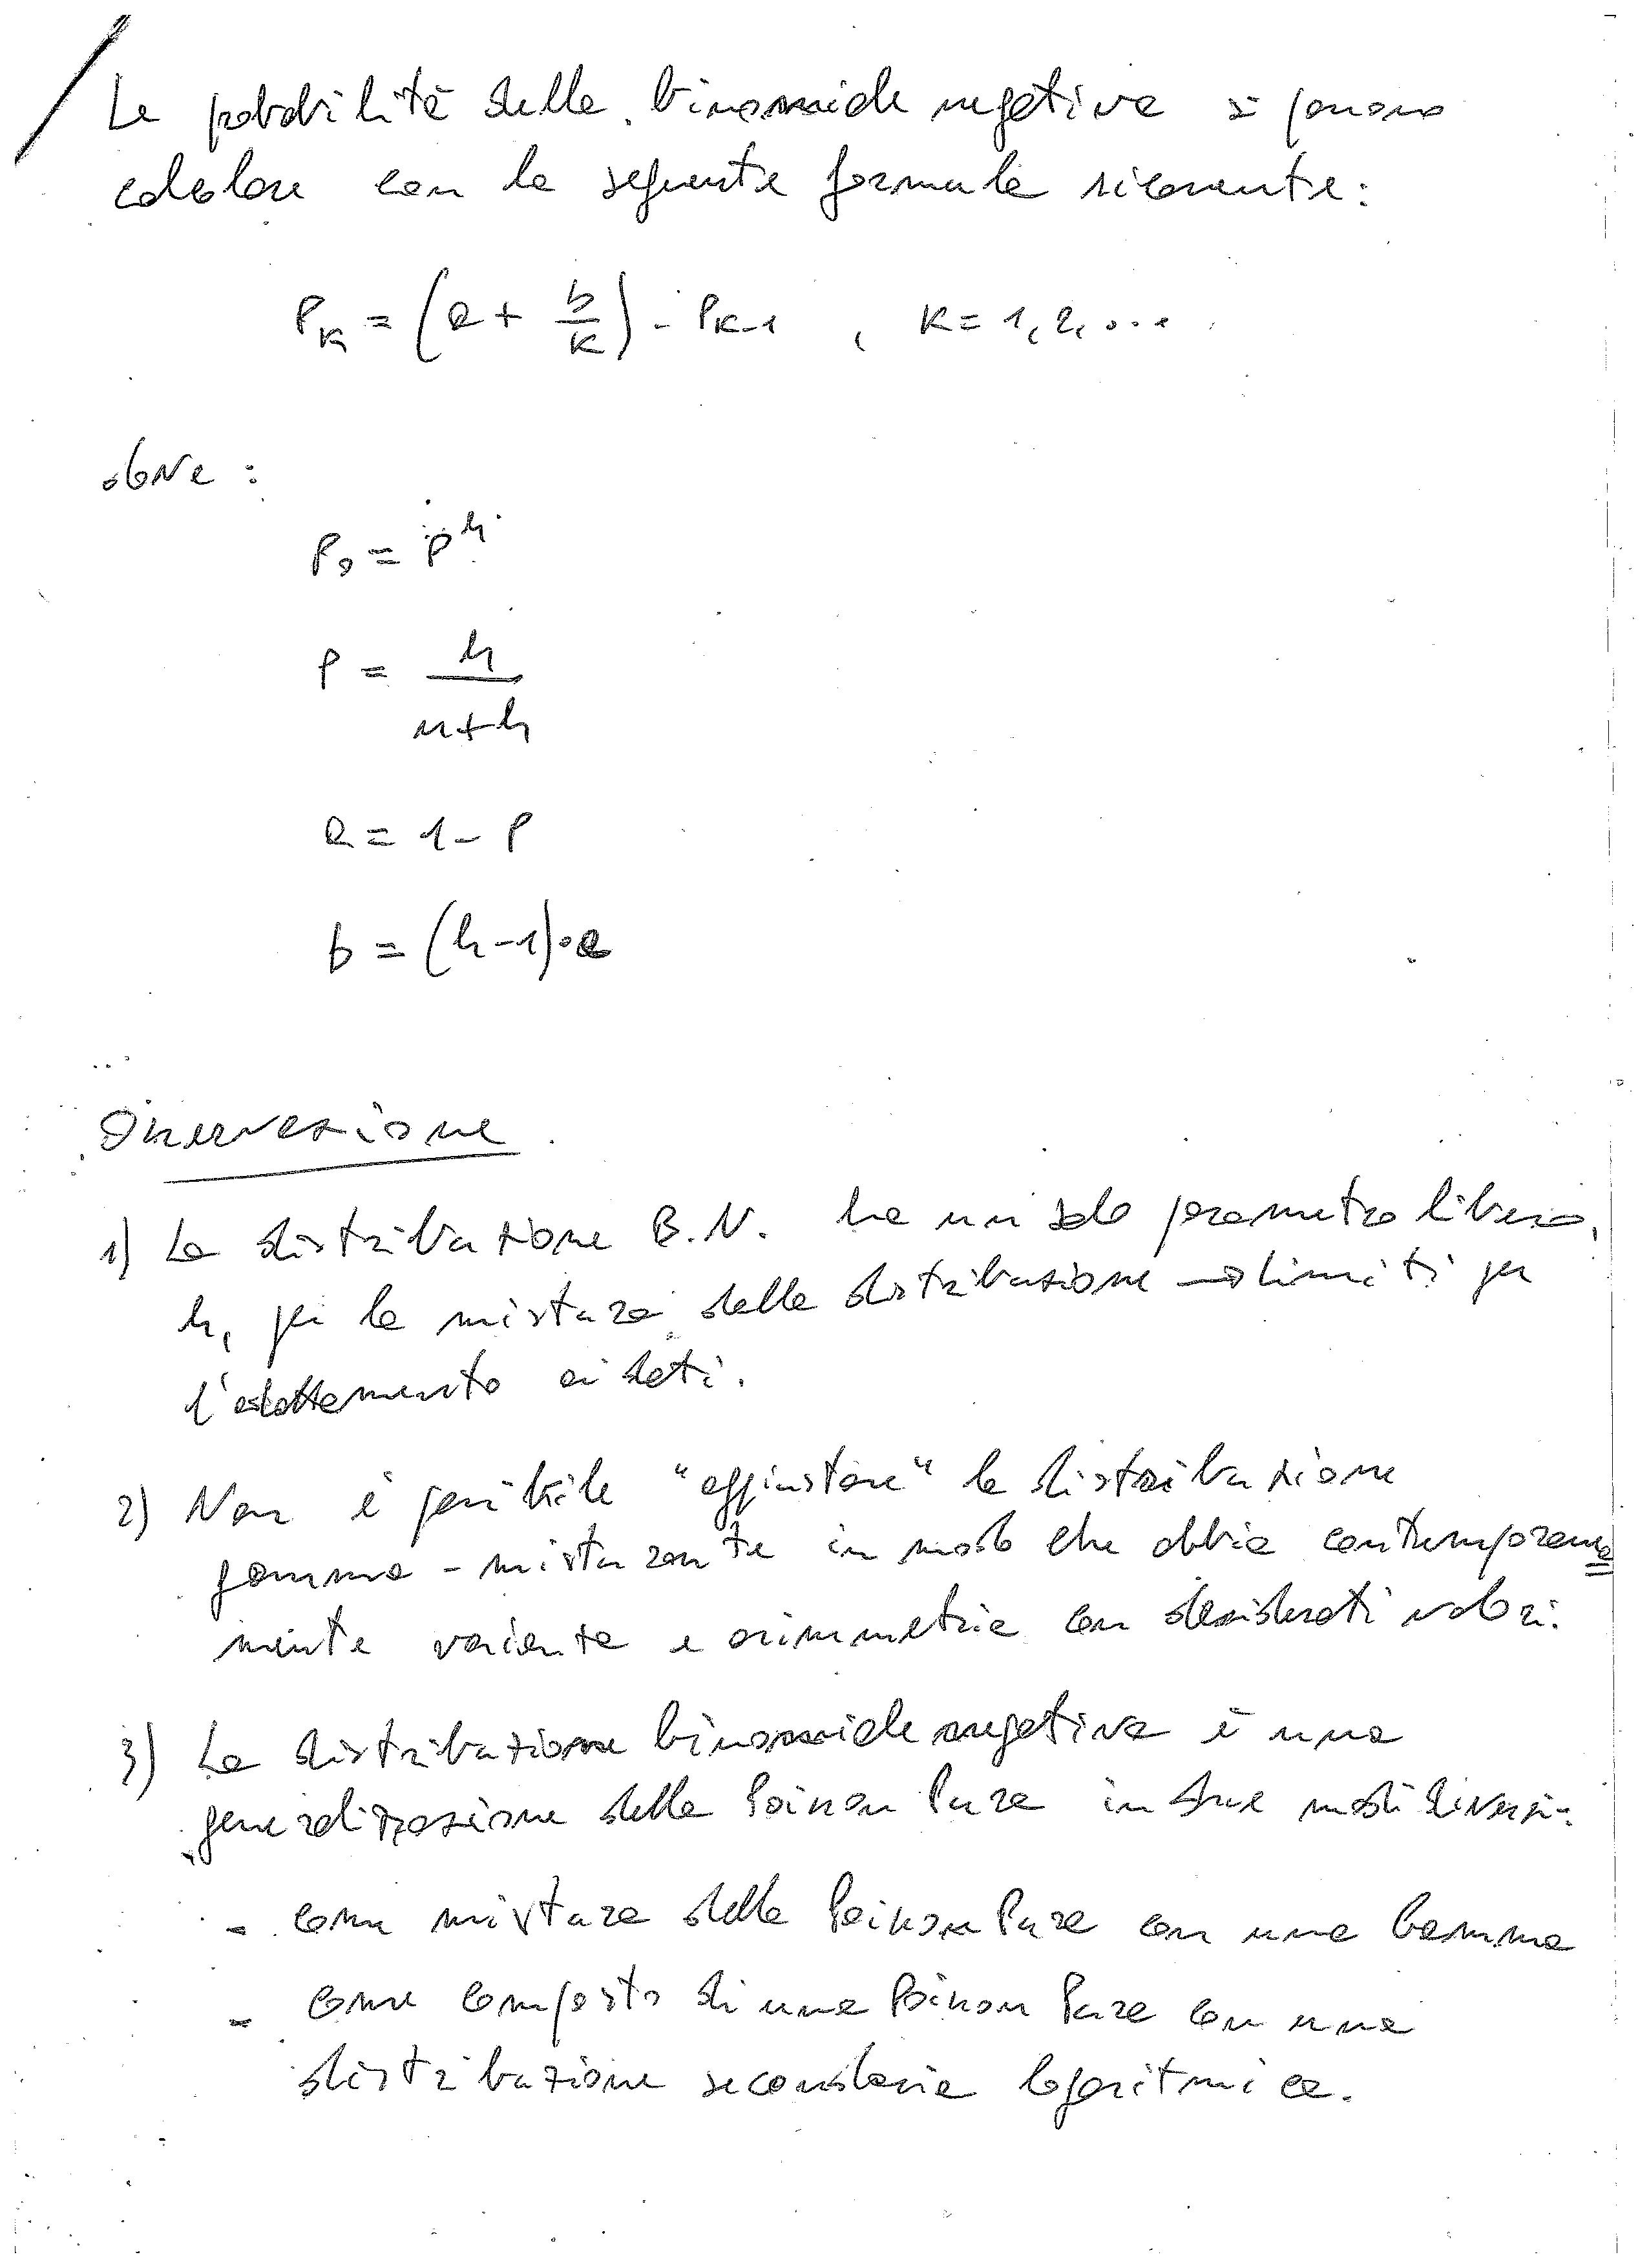 Le probabilità della binomiale negativa si possono
calcolare con la seguente formula ricorrente:
P_k = (a + b/k) · P_{k-1} , k = 1, 2, ...
dove:
P_0 = p^h
p = h/(n+h)
a = 1 - p
b = (h-1)·a
Osservazione
1) La distribuzione B.N. ha un solo parametro libero,
h, per la mistura della distribuzione → limiti per
l'adattamento ai dati.
2) Non è possibile "aggiustare" la distribuzione
gamma - misturante in modo che abbia contemporanea
mente varianza e asimmetria con desiderati valori.
3) La distribuzione binomiale negativa è una
generalizzazione della Poisson Pura in due modi diversi:
- come mistura della Poisson Pura con una Gamma
- come composto di una Poisson Pura con una
distribuzione secondaria logaritmica.